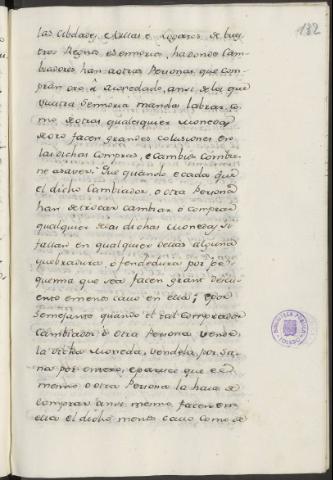 132
las Cibdades, e Villas e Lugares de bues
tros Regnos e Sennorios, ha donde Cam
biadores han a otras Personas que com
pran oro, e Amonedado, ansi de la que
vuestra Sennoria manda labrar, co
mo de otras qualesquier Monedas
de oro facen grandes colusiones en
las dichas Compras, e Cambios combie
ne a saver. Que quando e cada que
el dicho Cambiador o otra Persona
han de trocar, cambiar, o comprar
qualquier de las dichas Monedas si
fallan en qualquier dellas alguna
quebradura, o fendedura por pe
quenna que sea facen grant descu
ento e menos cavo en ella; e por
semejante quando el tal Comprador
Cambiador o otra Persona vende
la dicha Moneda, vendela por sa
na por entero, e parece que el
mesmo o otra Persona la haia de
comprar ansi mesmo facen en
ella el dicho menos cavo como de
BIBLIOTECA PUBLICA
TOLEDO